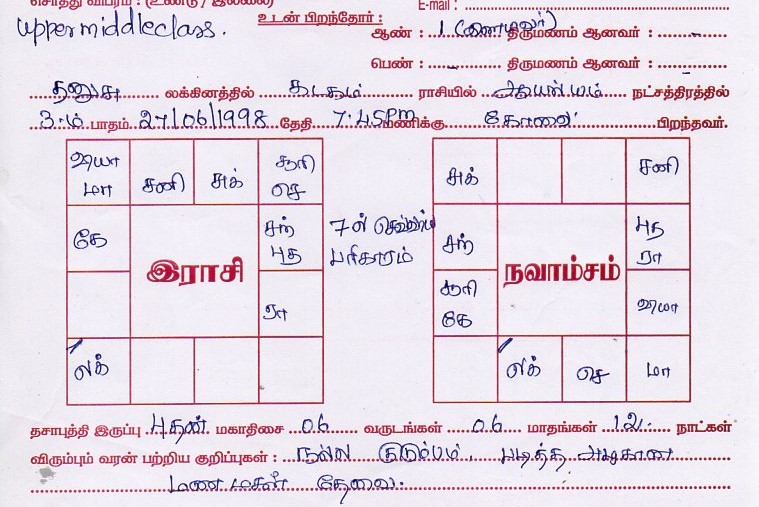 சொத்து விபரம் : (உண்டு / இல்லை) E-mail :
Upper middle class. உடன் பிறந்தோர் :
ஆண் : 1 திருமணம் ஆனவர் : -
பெண் : - திருமணம் ஆனவர் : -
தனுசு லக்கினத்தில் கடகம் ராசியில் ஆயில்யம் நட்சத்திரத்தில்
3-ம் பாதம் 27/06/1998 தேதி 7.45PM மணிக்கு கோவை பிறந்தவர்.
வியா மா சனி சுக் சூரி செ
கே சந் புத
இராசி
ரா
லக்
7ல் செவ்வாய்
பரிகாரம்
சுக் சனி
சந் புத ரா
நவாம்சம்
சூரி கே வியா
லக் செ மா
தசாபுத்தி இருப்பு புதன் மகாதிசை 06 வருடங்கள் 06 மாதங்கள் 12 நாட்கள்
விரும்பும் வரன் பற்றிய குறிப்புகள் : நல்ல குடும்பம், படித்த அழகான
மணமகன் தேவை.